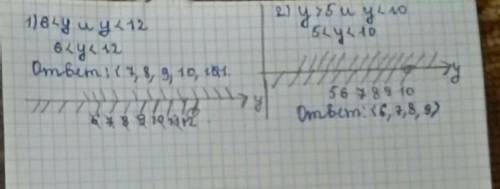 1) 6<y и y<12
6<y<12
Ответ: (7, 8, 9, 10, 11.
y
6 7 8 9 10 11 12
2) y>5 и y<10
5<y<10
y
5 6 7 8 9 10
Ответ: (6, 7, 8, 9)